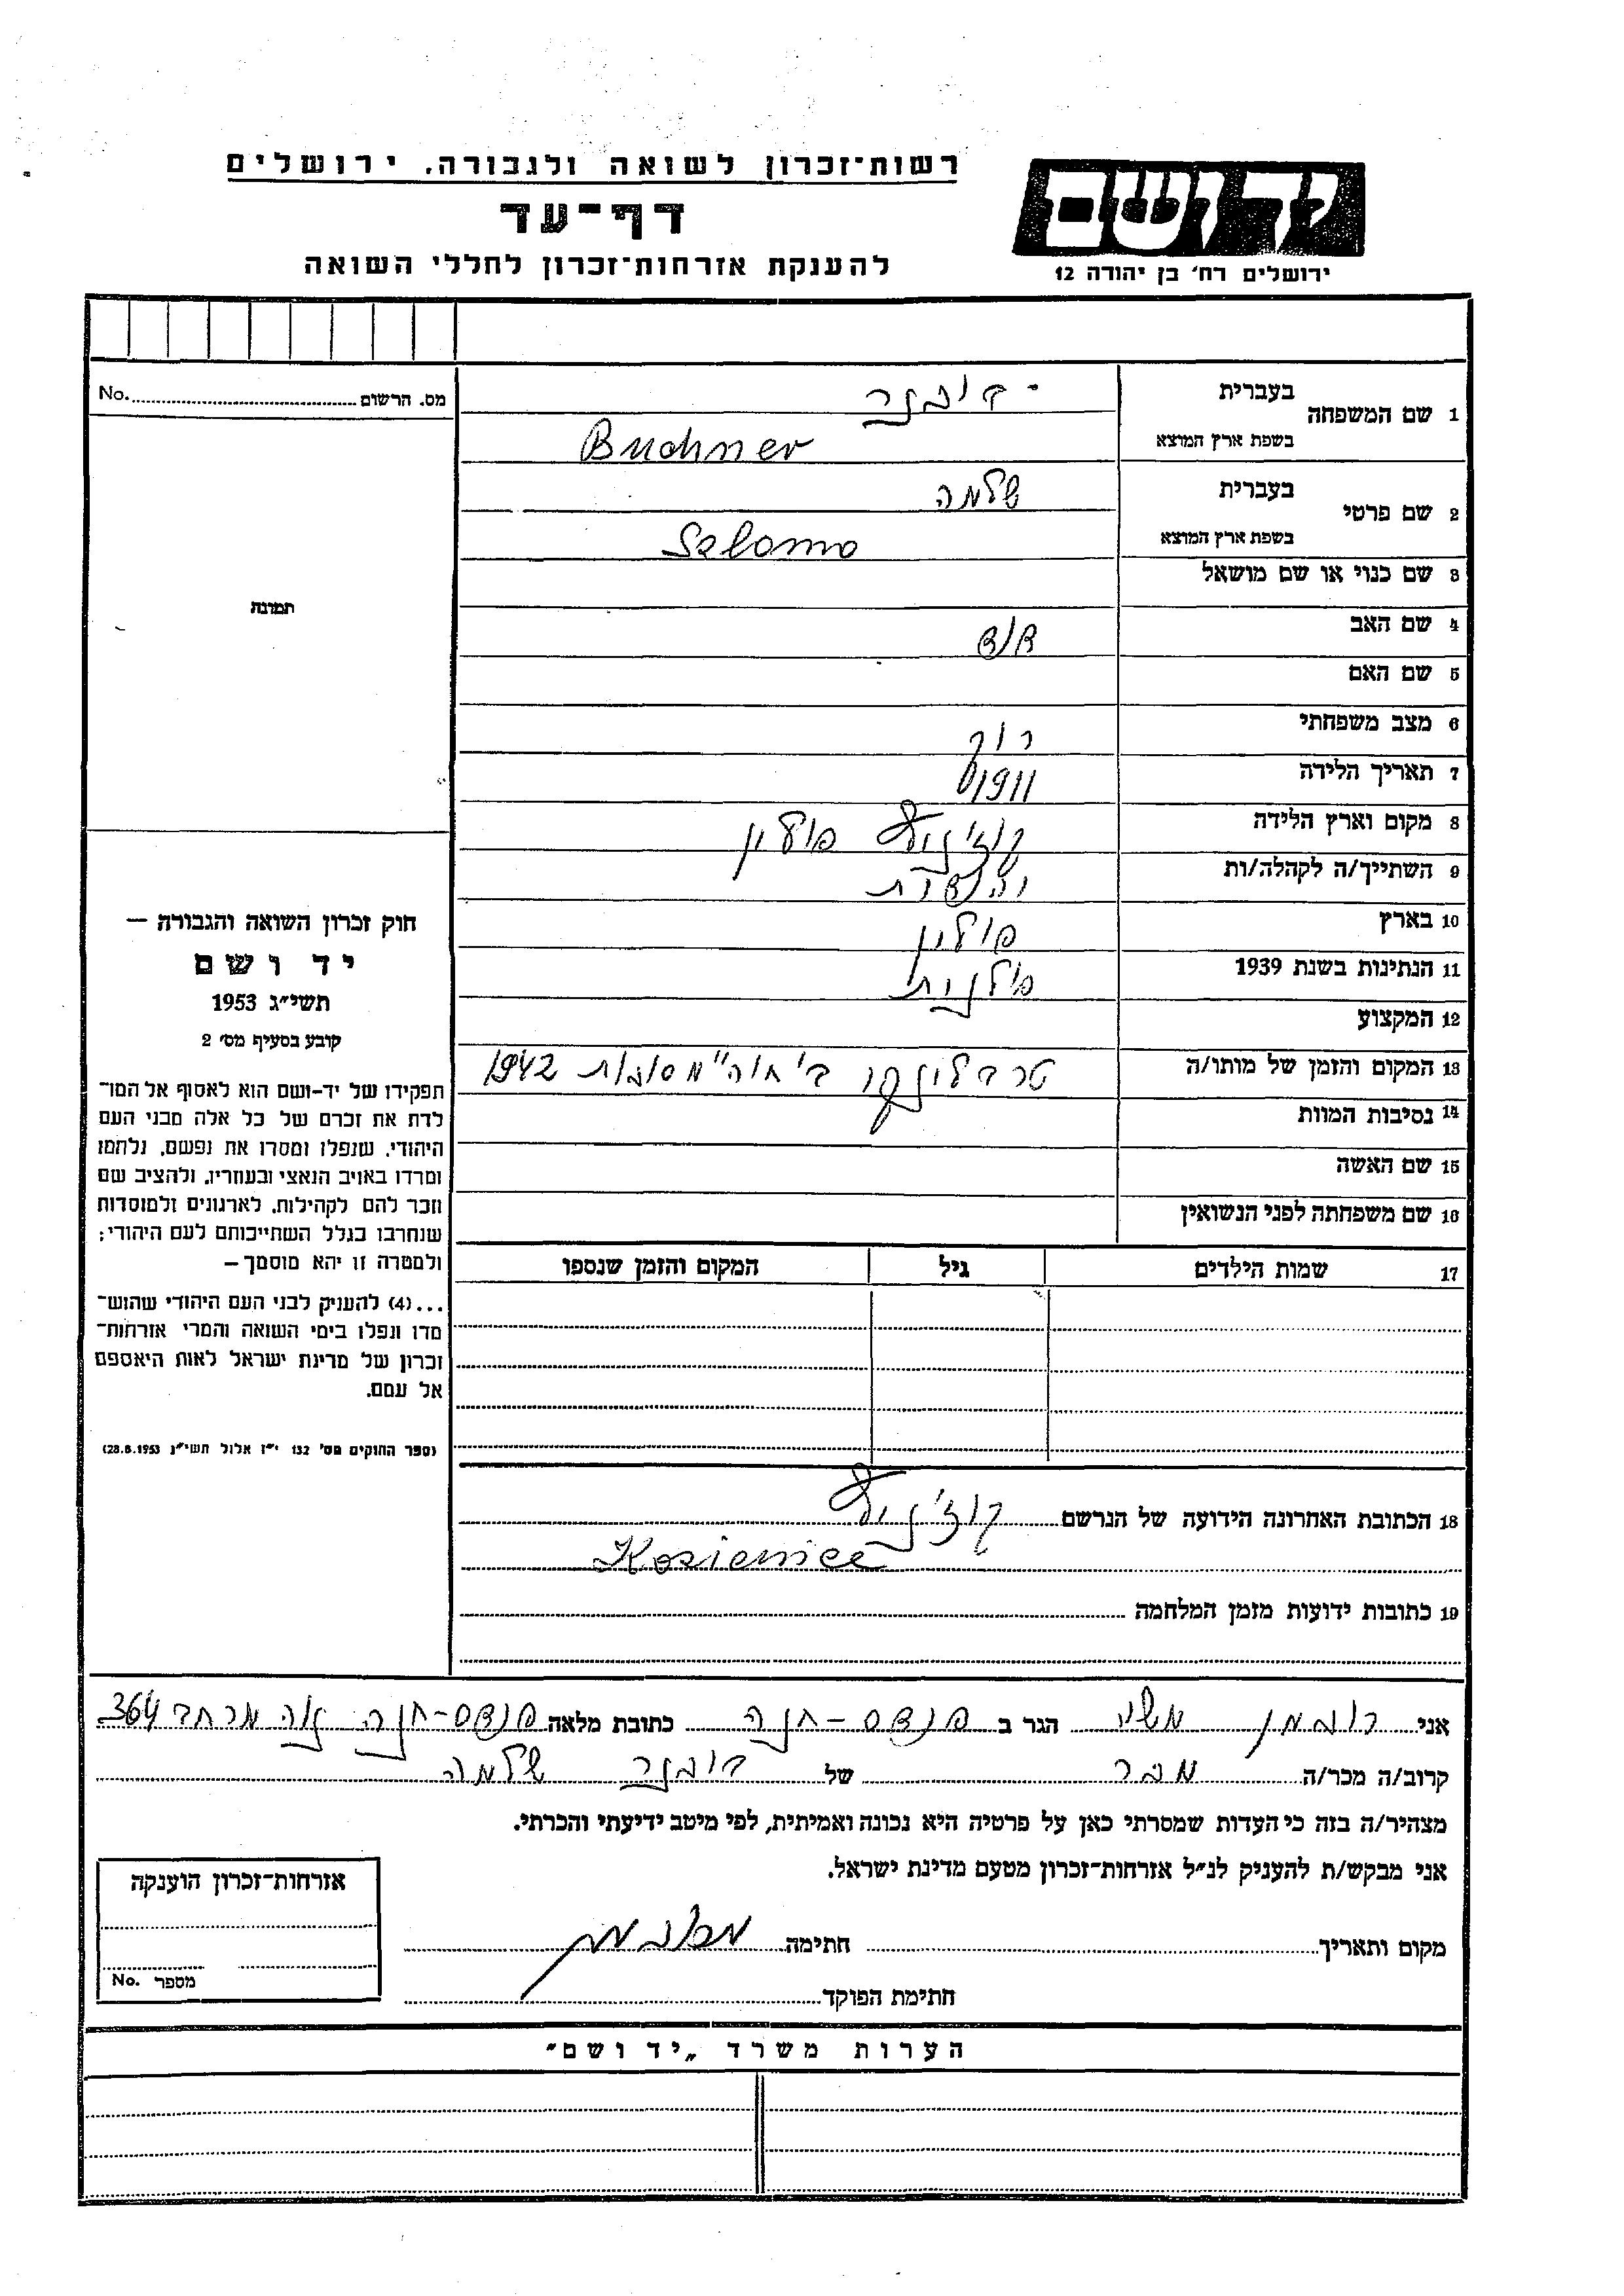 רשות־זכרון לשואה ולגבורה, ירושלים
דף־עד
להענקת אזרחות־זכרון לחללי השואה
יד ושם
ירושלים רח' בן יהודה 12
מס. הרשום No.
תמונה
1 שם המשפחה בעברית בוכנר
בשפת ארץ המוצא Buchner
2 שם פרטי בעברית שלמה
בשפת ארץ המוצא Szlomo
3 שם כנוי או שם מושאל
4 שם האב
5 שם האם
6 מצב משפחתי רווק
7 תאריך הלידה 1911
8 מקום וארץ הלידה קוז'ניץ פולין
9 השתייך/ה לקהלה/ות
10 בארץ פולין
11 הנתינות בשנת 1939 פולנית
12 המקצוע
13 המקום והזמן של מותו/ה טרבלינקה ב' חוה"מ סוכות 1942
14 נסיבות המוות
15 שם האשה
16 שם משפחתה לפני הנשואין
17 שמות הילדים גיל המקום והזמן שנספו
חוק זכרון השואה והגבורה —
יד ושם
תשי"ג 1953
קובע בסעיף מס' 2
תפקידו של יד-ושם הוא לאסוף אל המו־
לדת את זכרם של כל אלה מבני העם
היהודי, שנפלו ומסרו את נפשם, נלחמו
ומרדו באויב הנאצי ובעוזריו, ולהציב שם
וזכר להם לקהילות, לארגונים ולמוסדות
שנחרבו בגלל השתייכותם לעם היהודי;
ולמטרה זו יהא מוסמך —
...(4) להעניק לבני העם היהודי שהוש־
מדו ונפלו בימי השואה והמרי אזרחות־
זכרון של מדינת ישראל לאות היאספם
אל עמם.
(ספר החוקים מס' 132 י"ז אלול תשי"ג 28.8.1953)
18 הכתובת האחרונה הידועה של הנרשם קוז'ניץ
Kozienice
19 כתובות ידועות מזמן המלחמה
אני רוכמן הגר ב פרדס-חנה כתובת מלאה פרדס-חנה נוה מרחב 364
קרוב/ה מכר/ה מכר של בוכנר שלמה
מצהיר/ה בזה כי העדות שמסרתי כאן על פרטיה היא נכונה ואמיתית, לפי מיטב ידיעתי והכרתי.
אני מבקש/ת להעניק לנ"ל אזרחות־זכרון מטעם מדינת ישראל.
מקום ותאריך חתימה
חתימת הפוקד
אזרחות־זכרון הוענקה
מספר No.
הערות משרד „יד ושם"